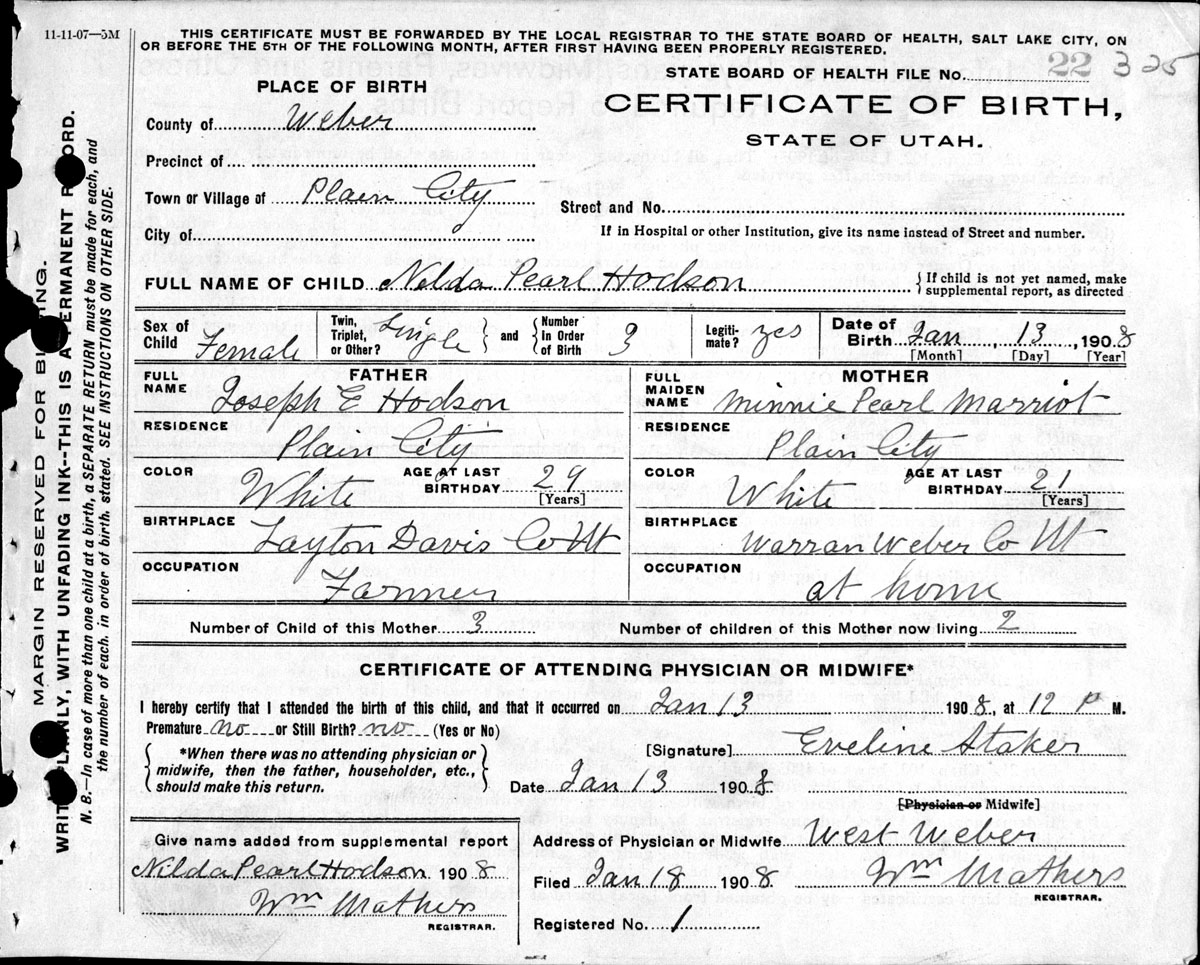 11-11-07—5M
THIS CERTIFICATE MUST BE FORWARDED BY THE LOCAL REGISTRAR TO THE STATE BOARD OF HEALTH, SALT LAKE CITY, ON
OR BEFORE THE 5TH OF THE FOLLOWING MONTH, AFTER FIRST HAVING BEEN PROPERLY REGISTERED.
STATE BOARD OF HEALTH FILE No. 22 325
PLACE OF BIRTH
CERTIFICATE OF BIRTH,
STATE OF UTAH.
County of Weber
Precinct of
Town or Village of Plain City
Street and No.
City of
If in Hospital or other Institution, give its name instead of Street and number.
FULL NAME OF CHILD Nilda Pearl Hodson
{ If child is not yet named, make
supplemental report, as directed
Sex of Child Female
Twin, Triplet, or Other? Single } and { Number in Order of Birth 3
Legiti-mate? yes
Date of Birth Jan 13, 1908
[Month] [Day] [Year]
FATHER
FULL NAME Joseph E Hodson
RESIDENCE Plain City
COLOR White AGE AT LAST BIRTHDAY 29 [Years]
BIRTHPLACE Layton Davis Co Ut
OCCUPATION Farmer
MOTHER
FULL MAIDEN NAME Minnie Pearl Marriot
RESIDENCE Plain City
COLOR White AGE AT LAST BIRTHDAY 21 [Years]
BIRTHPLACE Warran Weber Co Ut
OCCUPATION at home
Number of Child of this Mother 3 Number of children of this Mother now living 2
CERTIFICATE OF ATTENDING PHYSICIAN OR MIDWIFE*
I hereby certify that I attended the birth of this child, and that it occurred on Jan 13 1908, at 12 P M.
Premature no or Still Birth? no (Yes or No)
{ *When there was no attending physician or
midwife, then the father, householder, etc.,
should make this return. }
[Signature] Eveline Staker
Date Jan 13 1908
[Physician or Midwife]
Give name added from supplemental report
Nilda Pearl Hodson 1908
Wm Mathers
REGISTRAR.
Address of Physician or Midwife West Weber
Filed Jan 18 1908 Wm Mathers
REGISTRAR.
Registered No. 1
MARGIN RESERVED FOR
WRITE PLAINLY, WITH UNFADING INK--THIS IS A PERMANENT RECORD.
N. B.—In case of more than one child at a birth, a SEPARATE RETURN must be made for each, and
the number of each, in order of birth, stated. SEE INSTRUCTIONS ON OTHER SIDE.